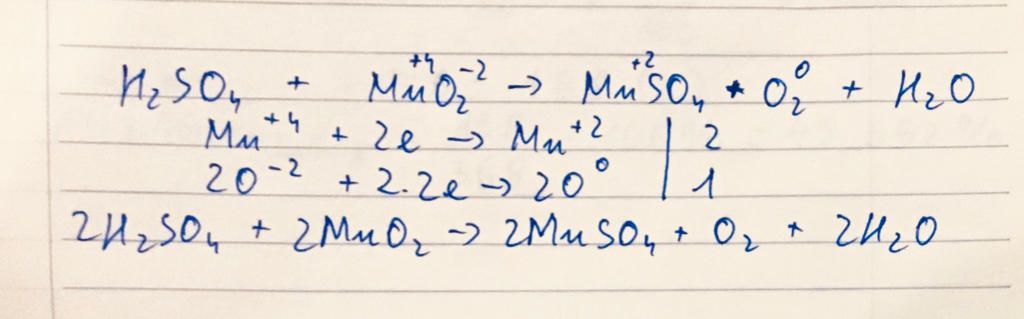 H₂SO₄ + Mn⁺⁴O₂⁻² → Mn⁺²SO₄ + O₂⁰ + H₂O
Mn⁺⁴ + 2e → Mn⁺² | 2
2O⁻² + 2.2e → 2O⁰ | 1
2H₂SO₄ + 2MnO₂ → 2MnSO₄ + O₂ + 2H₂O